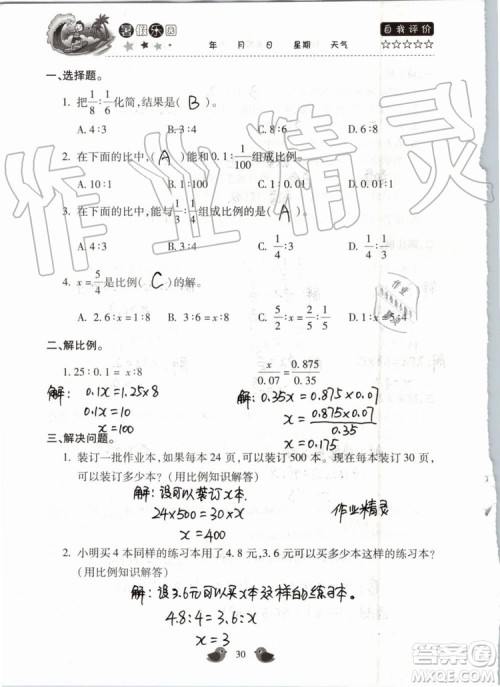 暑假乐园
年 月 日 星期 天气
自我评价
☆☆☆☆☆
一、选择题。
1. 把1/8∶1/6化简,结果是( B )。
A. 4∶3 B. 3∶4 C. 8∶6 D. 6∶8
2. 在下面的比中,( A )能和0.1∶1/100组成比例。
A. 10∶1 B. 1∶100 C. 1∶0.01 D. 0.01∶1
3. 在下面的比中,能与1/3∶1/4组成比例的是( A )。
A. 4∶3 B. 3∶4 C. 1/4∶3 D. 1/3∶4
4. x=5/4是比例( C )的解。
A. 2.6∶x=1∶8 B. 3∶6=x∶8 C. 5/2∶x=1∶1/2 D. 0.1∶x=5∶4
二、解比例。
1.25∶0.1=x∶8 x/0.07=0.875/0.35
解: 0.1x=1.25×8 解: 0.35x=0.875×0.07
0.1x=10 x=0.875×0.07/0.35
x=100 x=0.175
三、解决问题。
1. 装订一批作业本,如果每本 24 页,可以装订 500 本。现在每本装订 30 页,
可以装订多少本?(用比例知识解答)
解:设可以装订x本.
24×500=30×x
x=400
作业精灵
2. 小明买 4 本同样的练习本用了 4.8 元,3.6 元可以买多少本这样的练习本?
(用比例知识解答)
解:设3.6元可以买x本这样的练习本.
4.8:4=3.6:x
x=3
30
作业精灵